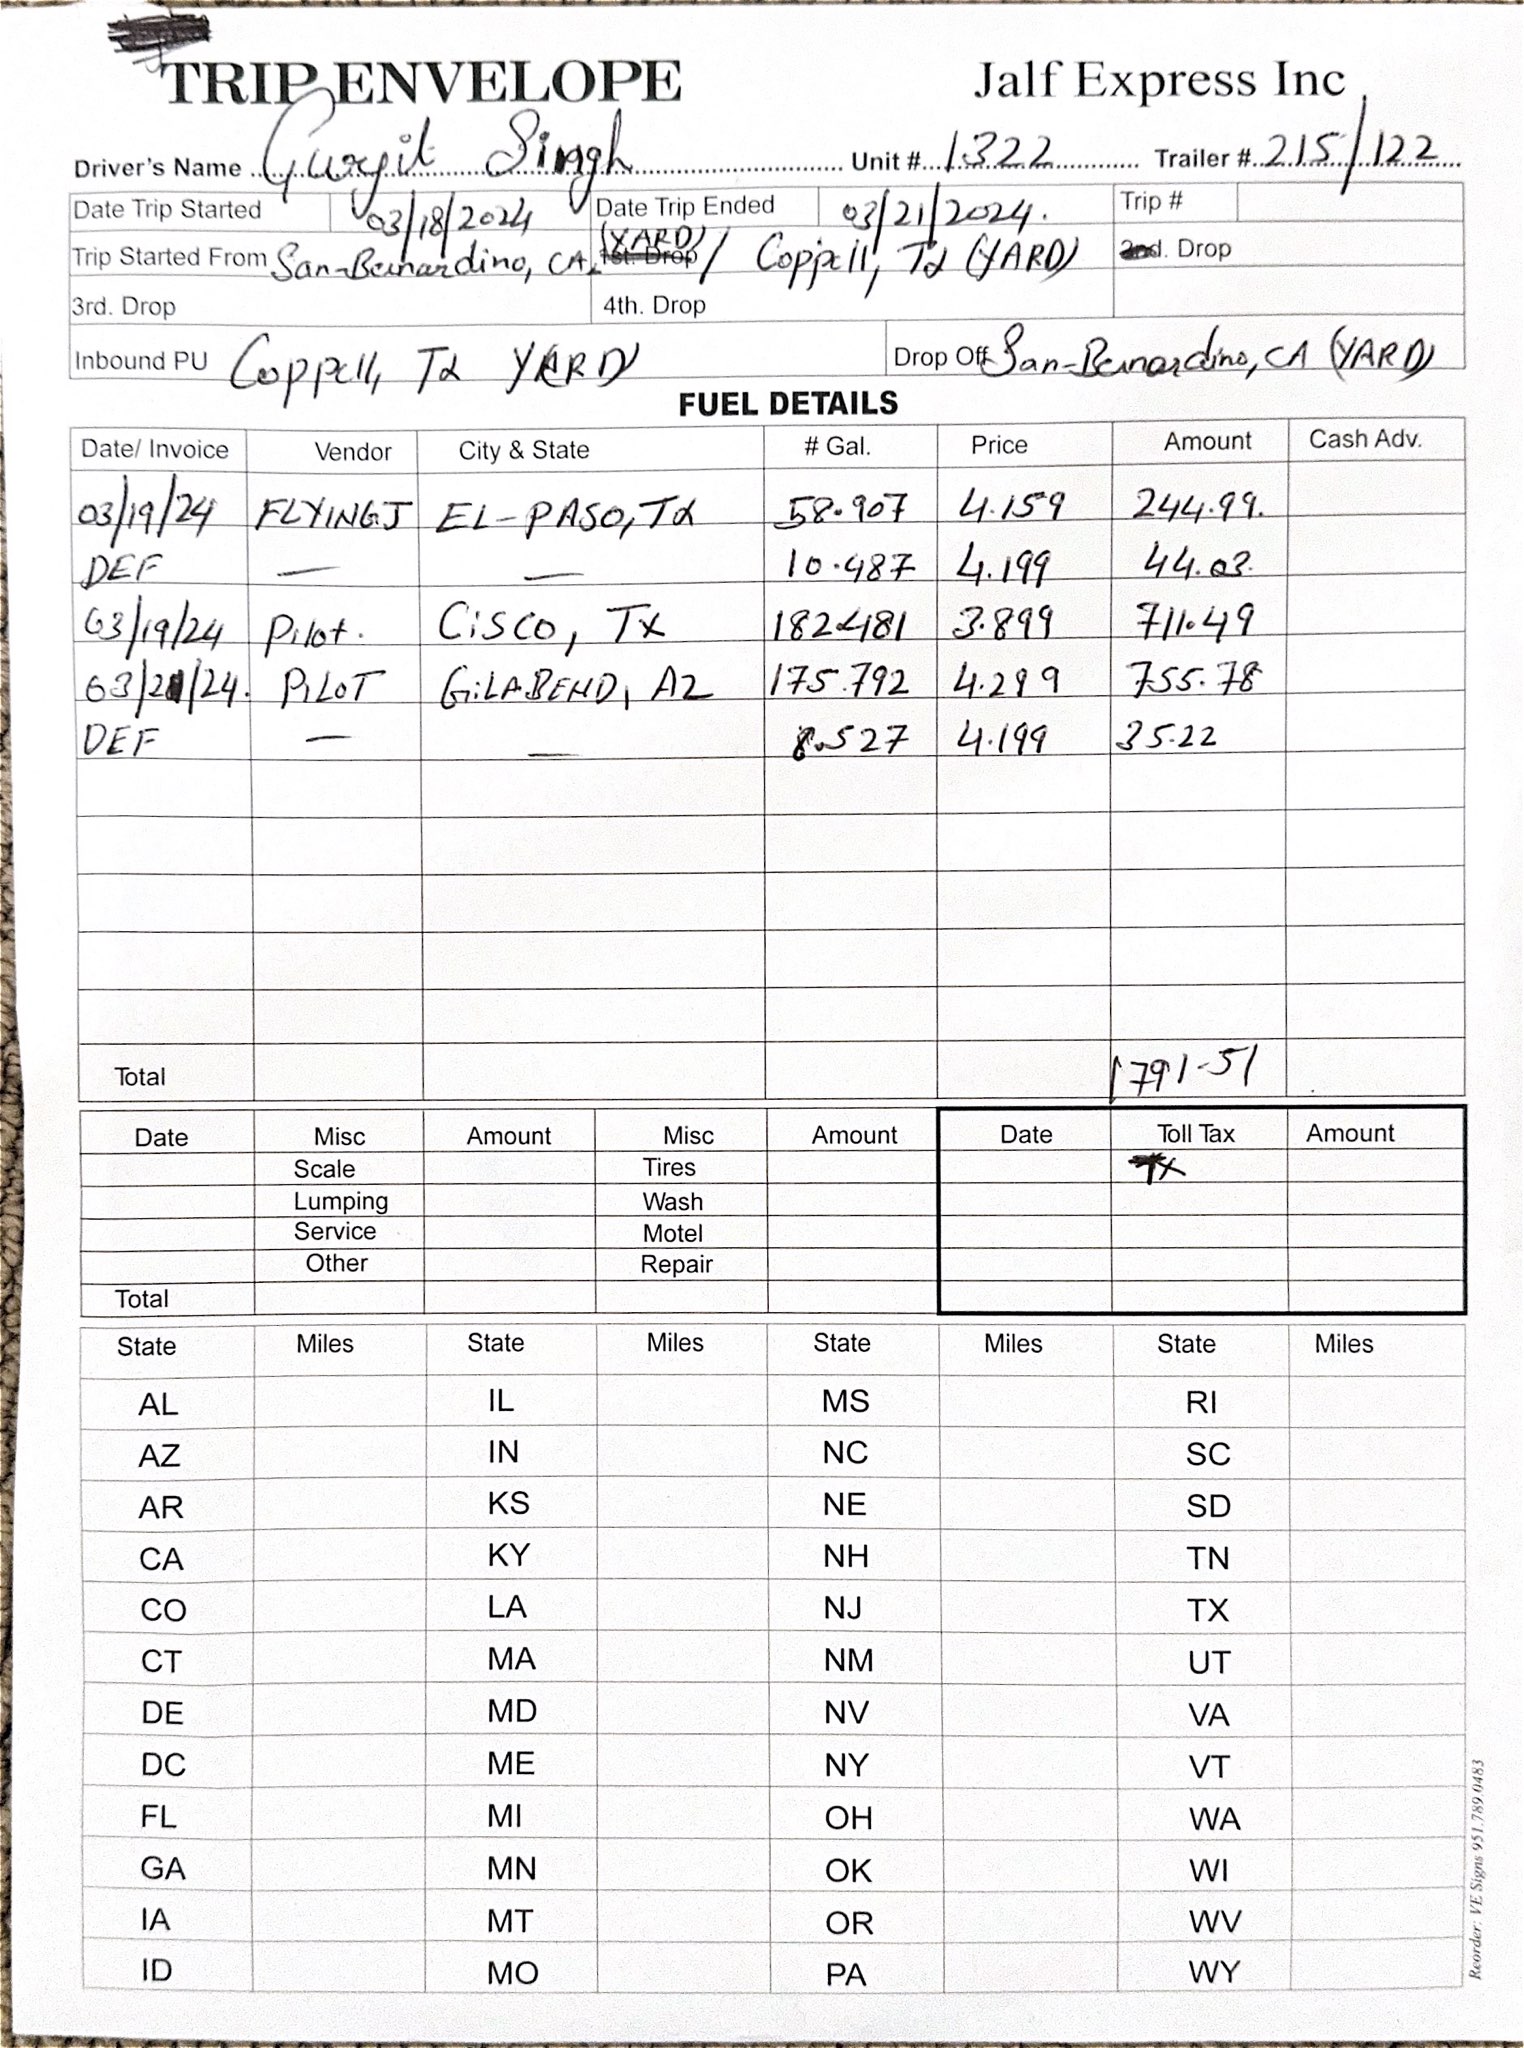 TRIP ENVELOPE Jalf Express Inc
Driver's Name Gurjit Singh Unit # 1322 Trailer # 215/122
Date Trip Started 03/18/2024 Date Trip Ended 03/21/2024. Trip #
Trip Started From San-Bernardino, CA. (YARD) / 1st. Drop Coppell, TX (YARD) 2nd. Drop
3rd. Drop 4th. Drop
Inbound PU Coppell, TX YARD Drop Off San-Bernardino, CA (YARD)
FUEL DETAILS
Date/ Invoice Vendor City & State # Gal. Price Amount Cash Adv.
03/19/24 FLYINGJ EL-PASO, TX 58.907 4.159 244.99.
DEF — — 10.487 4.199 44.03.
03/19/24 Pilot. CISCO, TX 182.481 3.899 711.49
03/21/24. PILOT GILABEND, AZ 175.792 4.299 755.78
DEF — — 8.527 4.199 35.22
Total 1791-51
Date Misc Amount Misc Amount Date Toll Tax Amount
Scale Tires TX
Lumping Wash
Service Motel
Other Repair
Total
State Miles State Miles State Miles State Miles
AL IL MS RI
AZ IN NC SC
AR KS NE SD
CA KY NH TN
CO LA NJ TX
CT MA NM UT
DE MD NV VA
DC ME NY VT
FL MI OH WA
GA MN OK WI
IA MT OR WV
ID MO PA WY
Reorder: VE Signs 951.789.0483